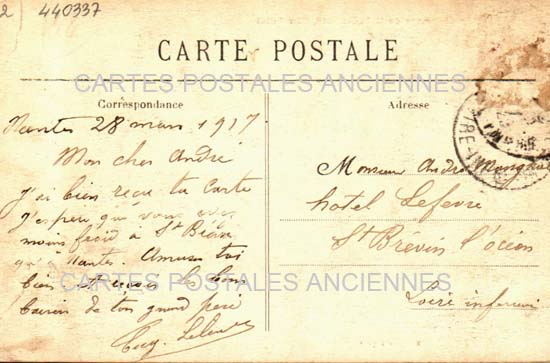 2 440337
CARTE POSTALE
CARTES POSTALES ANCIENNES
Correspondance
Adresse
Nantes 28 mars 1917
Mon cher André
J'ai bien reçu ta carte
J'espère que vous avez
moins froid à St Brévin
qu'à Nantes. Amuse toi
bien et reçois les bons
baisers de ton grand père
Monsieur André
hotel Lefevre
St Brévin l'océan
CARTES POSTALES ANCIENNES
Loire inferieure